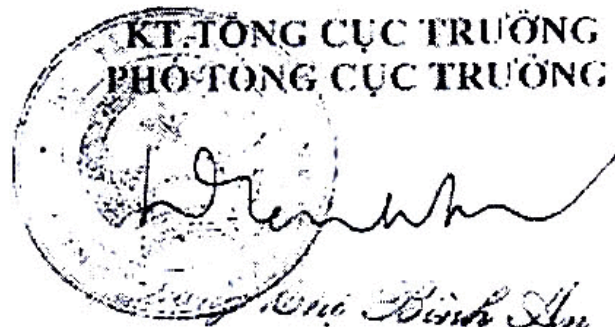 KT.TỔNG CỤC TRƯỞNG
PHÓ TỔNG CỤC TRƯỞNG
Thị Bình An